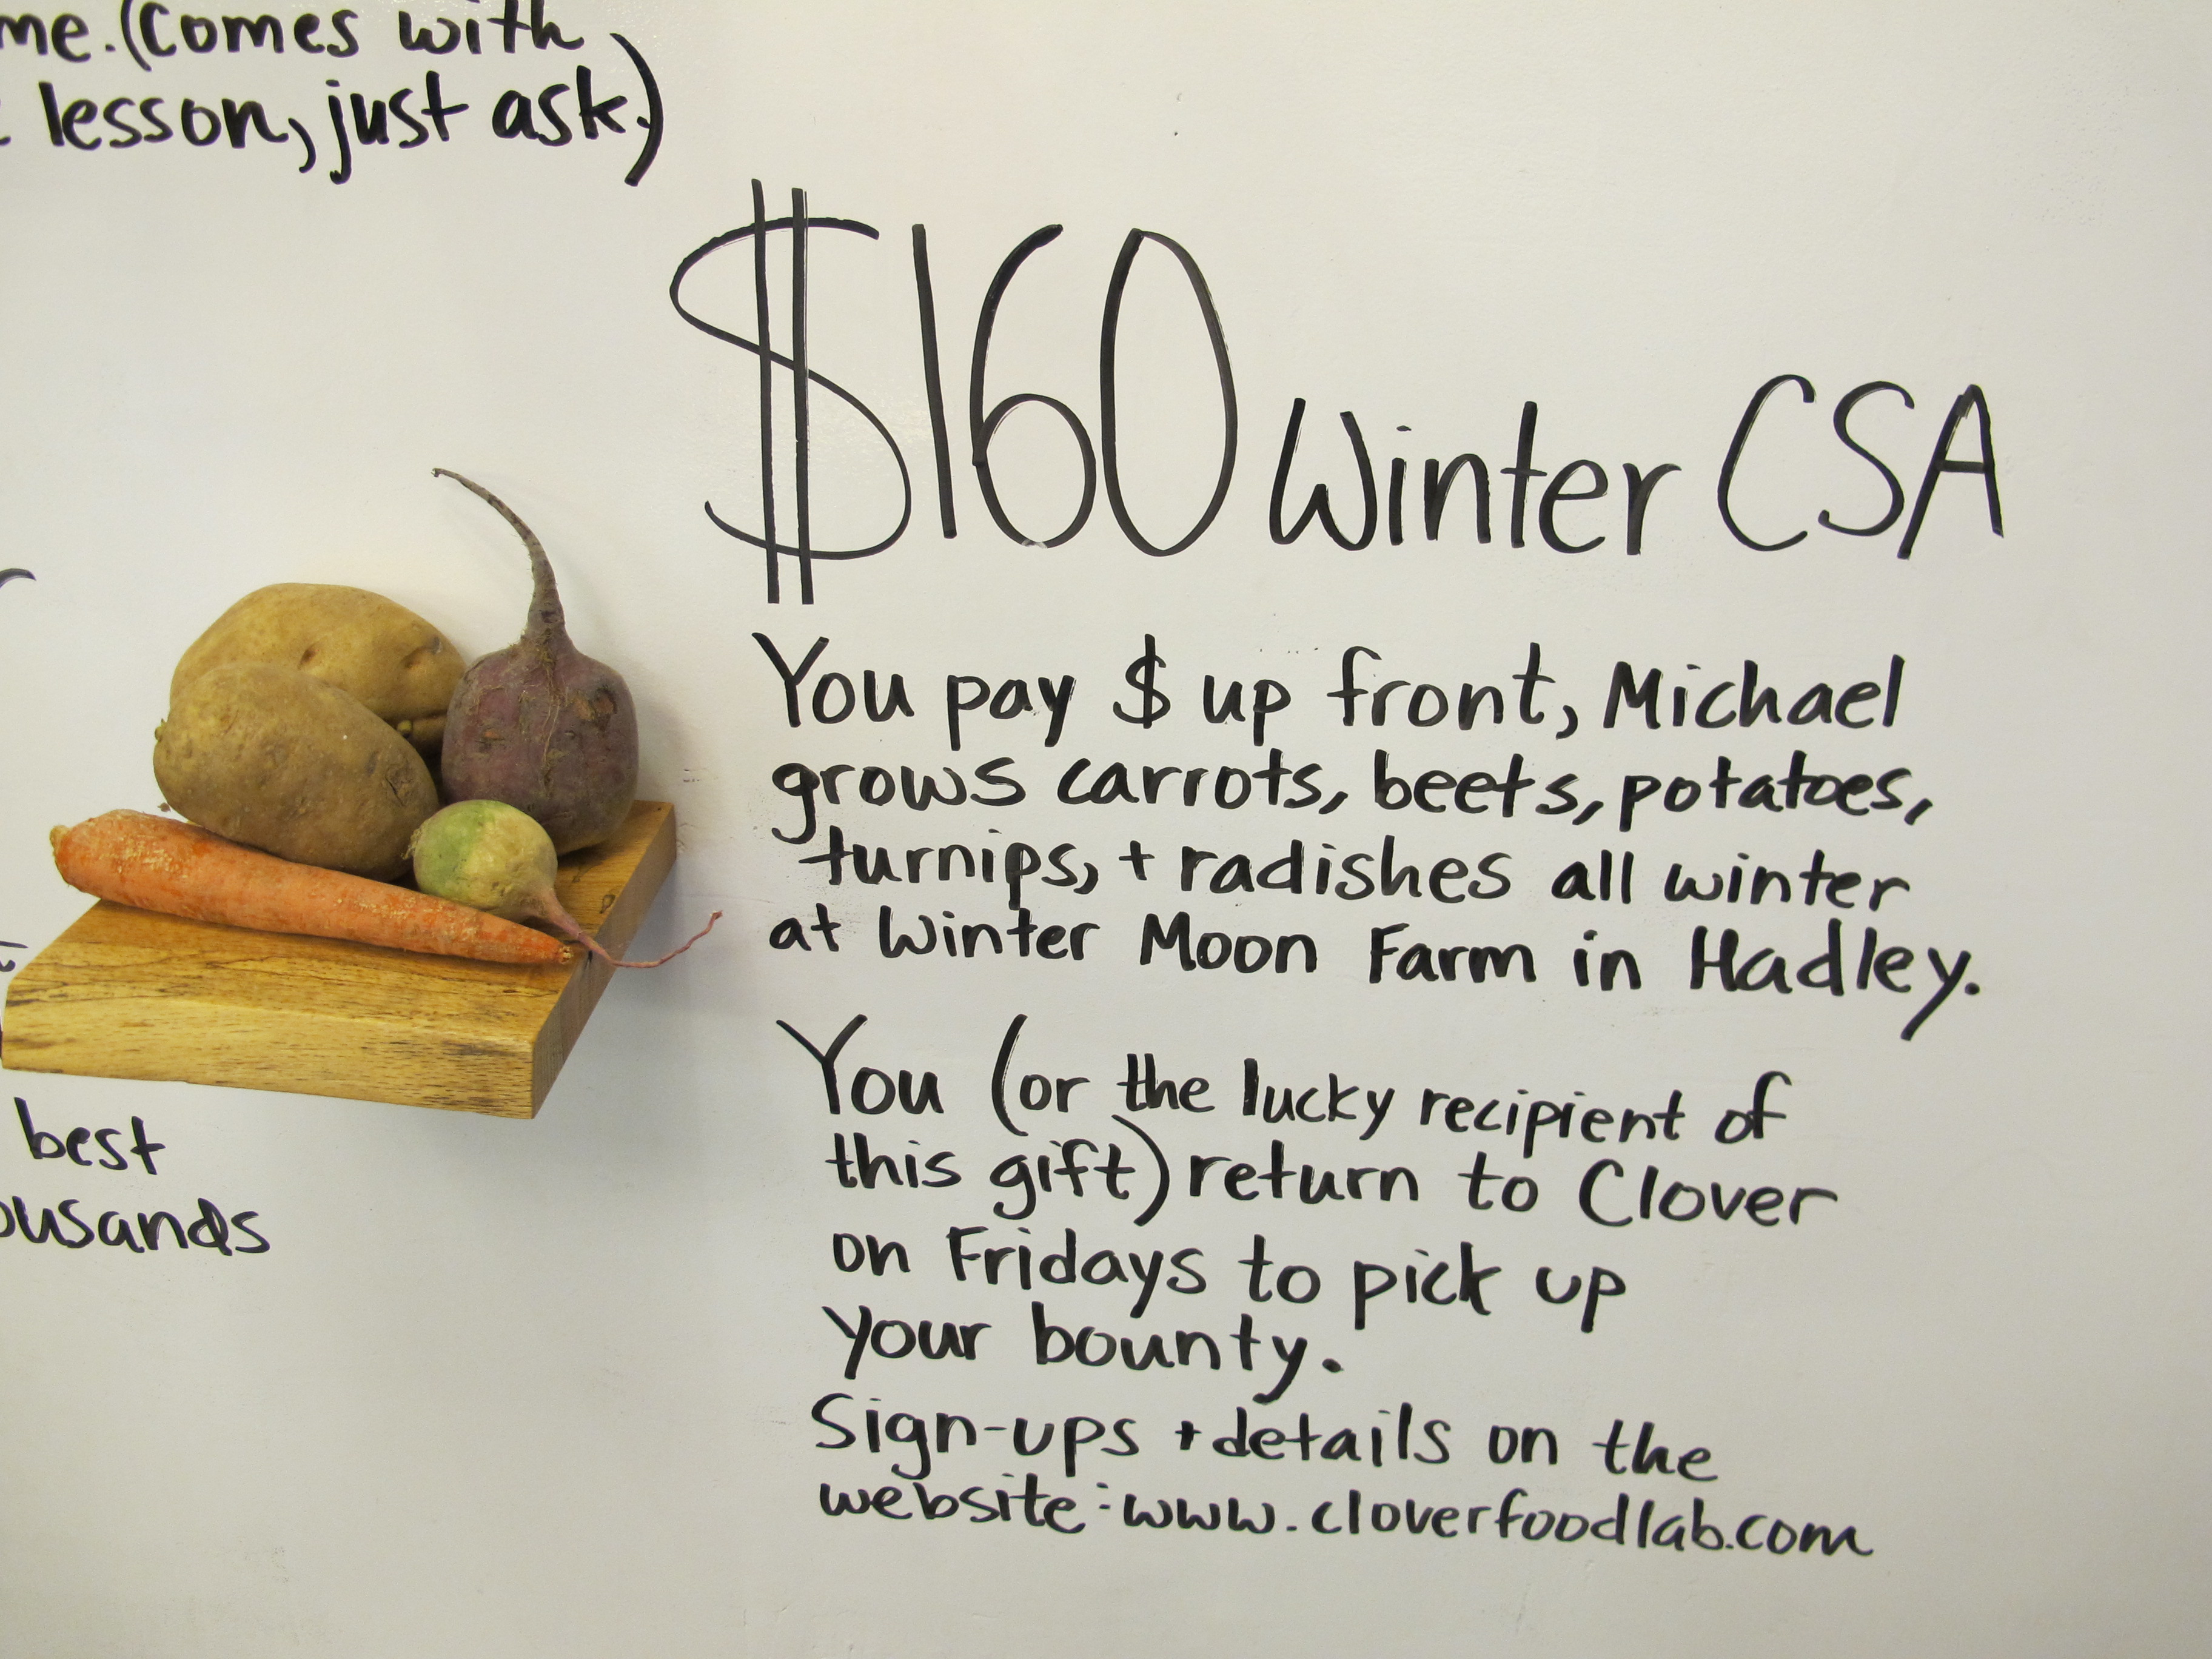 me. (Comes with
lesson, just ask.)
$160 Winter CSA
You pay $ up front, Michael
grows carrots, beets, potatoes,
turnips, + radishes all winter
at Winter Moon Farm in Hadley.
You (or the lucky recipient of
this gift) return to Clover
on Fridays to pick up
your bounty.
Sign-ups + details on the
website: www.cloverfoodlab.com
best
ousands